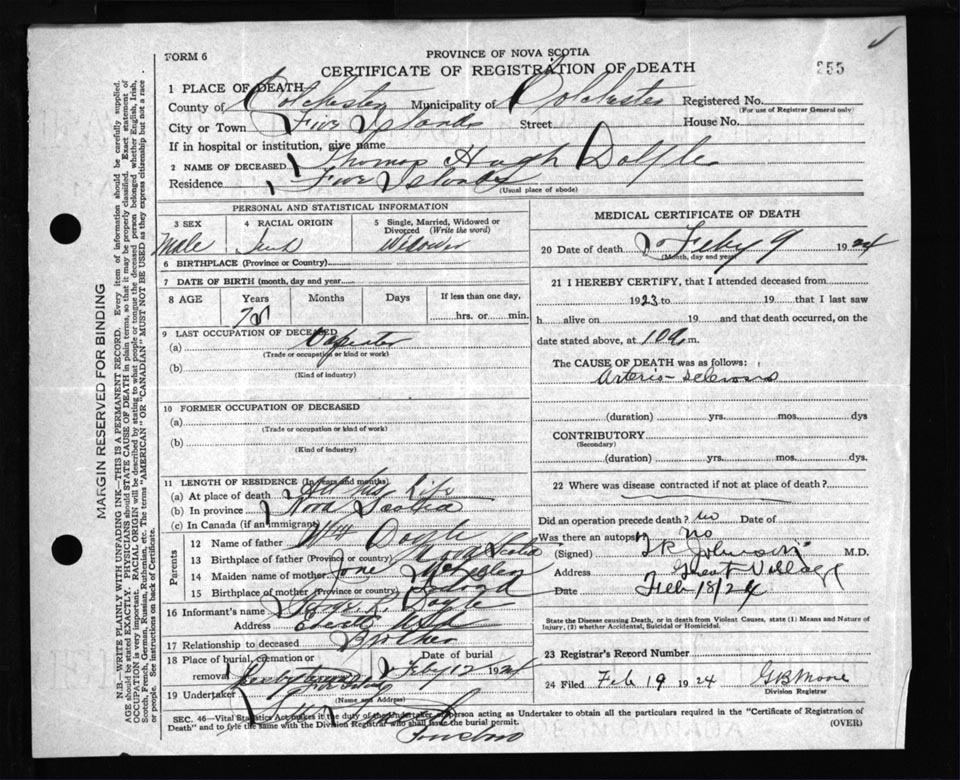 FORM 6
PROVINCE OF NOVA SCOTIA
CERTIFICATE OF REGISTRATION OF DEATH
255
1 PLACE OF DEATH
County of Colchester Municipality of Colchester Registered No.
(For use of Registrar General only)
City or Town Five Islands Street House No.
If in hospital or institution, give name
2 NAME OF DECEASED Thomas Hugh
Residence Five Islands
(Usual place of abode)
PERSONAL AND STATISTICAL INFORMATION
3 SEX 4 RACIAL ORIGIN 5 Single, Married, Widowed or Divorced (Write the word)
Male Widower
6 BIRTHPLACE (Province or Country)
7 DATE OF BIRTH (month, day and year)
8 AGE Years Months Days If less than one day,
hrs. or min.
9 LAST OCCUPATION OF DECEASED
(a) Carpenter
(Trade or occupation or kind or work)
(b)
(Kind of industry)
10 FORMER OCCUPATION OF DECEASED
(a)
(Trade or occupation or kind or work)
(b)
(Kind of industry)
11 LENGTH OF RESIDENCE (In years and months)
(a) At place of death All his Life
(b) In province Nova Scotia
(c) In Canada (if an immigrant)
Parents
12 Name of father Wm
13 Birthplace of father (Province or country) Nova Scotia
14 Maiden name of mother Jane
15 Birthplace of mother (Province or country)
16 Informant's name
Address USA
17 Relationship to deceased Brother
18 Place of burial, cremation or removal Date of burial
Feby 12 1924
19 Undertaker
(Name and Address)
MEDICAL CERTIFICATE OF DEATH
20 Date of death Feby 9 1924
(Month, day and year)
21 I HEREBY CERTIFY, that I attended deceased from
1923 to 19 that I last saw
h alive on 19 and that death occurred, on
date stated above, at 10 a m.
The CAUSE OF DEATH was as follows:
Arterio-sclerosis
(duration) yrs. mos. dys
CONTRIBUTORY
(Secondary)
(duration) yrs. mos. dys.
22 Where was disease contracted if not at place of death?
Did an operation precede death? no Date of
Was there an autopsy no
(Signed) Johnson M.D.
Address Great Village
Date Feb 18/24
State the Disease causing Death, or in death from Violent Causes, state (1) Means and Nature of Injury, (2) whether Accidental, Suicidal or Homicidal.
23 Registrar's Record Number
24 Filed Feb 19 1924 G B Moore
Division Registrar
SEC. 46—Vital Statistics Act makes it the duty of the Undertaker or person acting as Undertaker to obtain all the particulars required in the "Certificate of Registration of
Death" and to file the same with the Division Registrar who shall issue the burial permit.
(OVER)
MARGIN RESERVED FOR BINDING
N.B.—WRITE PLAINLY WITH UNFADING INK—THIS IS A PERMANENT RECORD. Every item of information should be carefully supplied.
AGE should be stated EXACTLY. PHYSICIANS should STATE CAUSE OF DEATH in plain terms, so that it may be properly classified. Exact statement of
OCCUPATION is very important. RACIAL ORIGIN will be described by stating to what people or tongue the deceased person belonged, whether English, Irish,
Scotch, French, German, Russian, Ruthenian, etc. The terms "AMERICAN" OR "CANADIAN" MUST NOT BE USED as they express citizenship but not a race
or people. See instructions on back of Certificate.